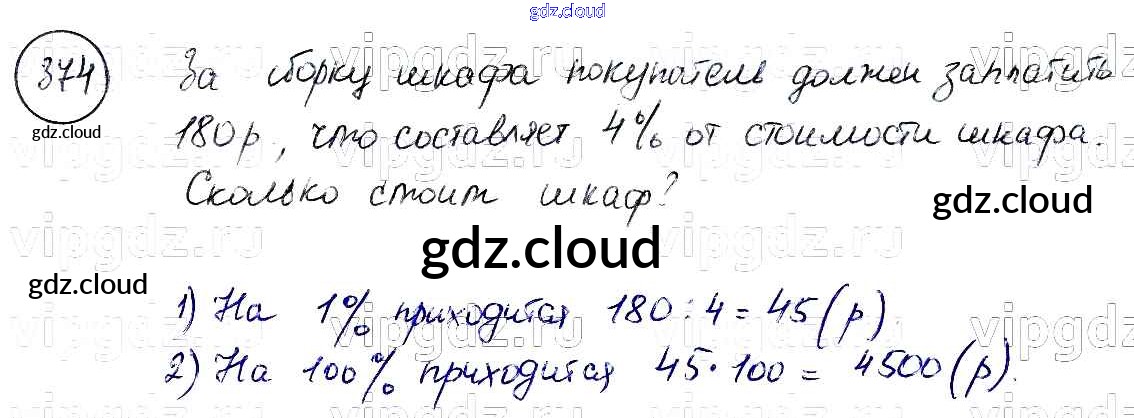 gdz.cloud
374
За сборку шкафа покупатель должен заплатить
gdz.cloud
180р, что составляет 4% от стоимости шкафа.
Сколько стоит шкаф?
gdz.cloud
vipgdz.ru
gdz.cloud
gdz.cloud
1) На 1% приходится 180 : 4 = 45 (р)
2) На 100% приходится 45 · 100 = 4500 (р).